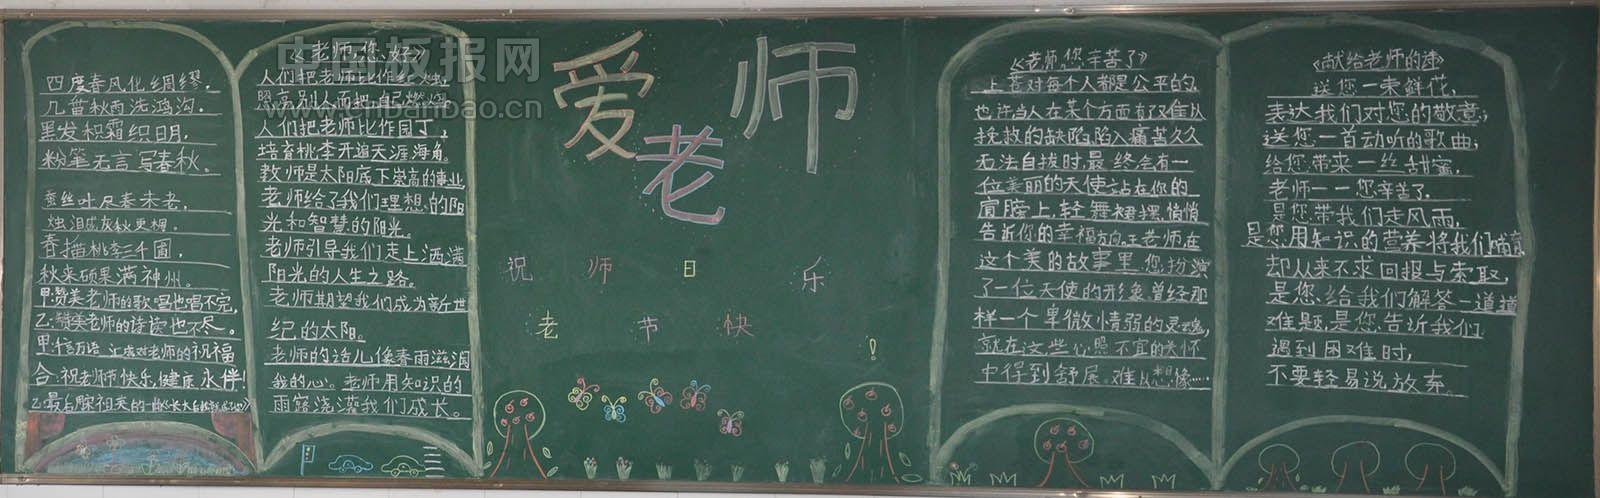 中国板报网
www.cnbanbao.cn
四度春风化绸缪，
几番秋雨洗鸿沟。
黑发积霜织日月，
粉笔无言写春秋。
蚕丝吐尽春未老，
烛泪成灰秋更稠。
春播桃李三千圃，
秋来硕果满神州。
甲:赞美老师的歌唱也唱不完，
乙:赞美老师的诗读也不尽。
甲:千言万语，汇成对老师的祝福
合:祝老师快乐，健康永伴！
《老师，您好》
人们把老师比作红烛，
照亮别人而把自己燃烧
人们把老师比作园丁，
培育桃李开遍天涯海角。
教师是太阳底下崇高的事业，
老师给了我们理想的阳
光和智慧的阳光。
老师引导我们走上洒满
阳光的人生之路。
老师期望我们成为新世
纪的太阳。
老师的话儿像春雨滋润
我的心。老师用知识的
雨露浇灌我们成长。
爱老师
祝老师节日快乐！
《老师，您辛苦了》
上苍对每个人都是公平的，
也许当人在某个方面有又难以
挽救的缺陷陷入痛苦久久
无法自拔时，最终会有一
位美丽的天使站在你的
肩膀上，轻舞裙摆，悄悄
告诉你的幸福方向。王老师，在
这个美的故事里，您扮演
了一位天使的形象曾经那
样一个卑微情弱的灵魂，
就在这些心照不宜的关怀
中得到舒展。难以想像……
《献给老师的诗》
送您一束鲜花，
表达我们对您的敬意；
送您一首动听的歌曲，
给您带来一丝甜蜜，
老师——您辛苦了，
是您带我们走风雨，
是您用知识的营养将我们哺育
却从来不求回报与索取，
是您给我们解答一道道
难题，是您告诉我们
遇到困难时，
不要轻易说放弃。